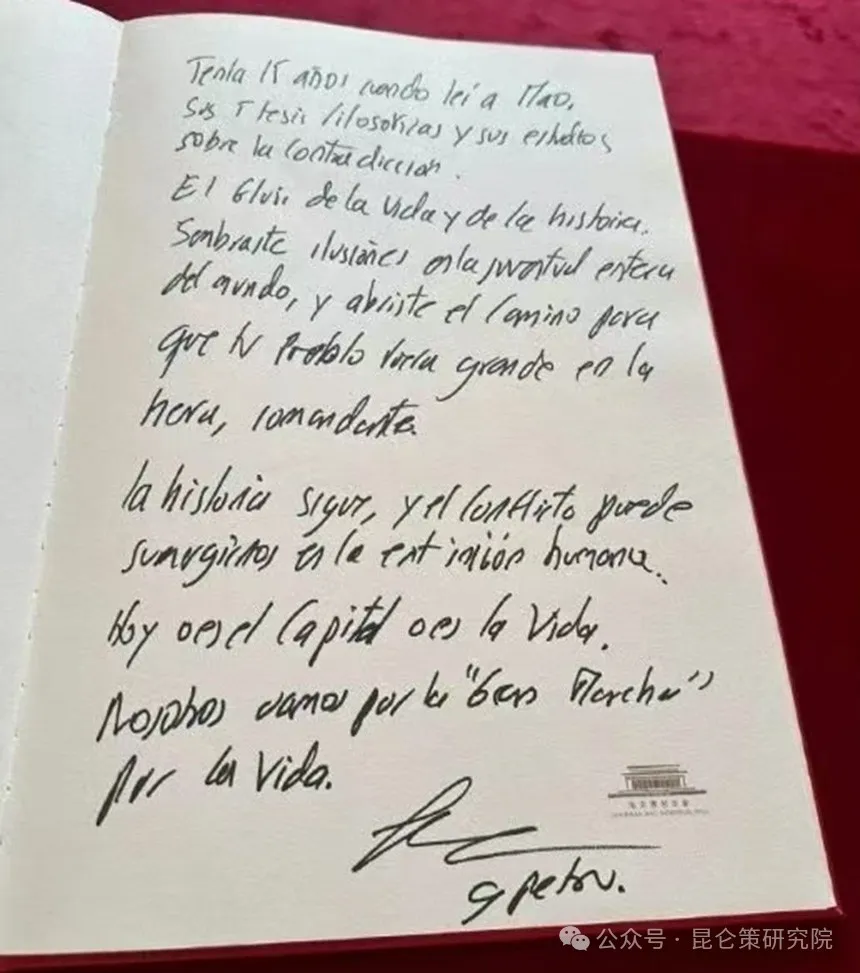 Tenía 15 años cuando leí a Mao.
Sus Tesis filosoficas y sus estudios
sobre la Contradiccion.
El fluir de la vida y de la historia.
Sembraste ilusiones en la juventud entera
del mundo, y abriste el camino para
que tu Pueblo fuera grande en la
tierra, comandante.
la historia sigue, y el Conflicto puede
sumergirnos en la extinción humana.
Hoy o es el Capital o es la Vida.
Nosotros vamos por la "Gran Marcha"
por la Vida.
G Petro.
毛主席纪念堂
CHAIRMAN MAO MEMORIAL HALL
公众号·昆仑策研究院